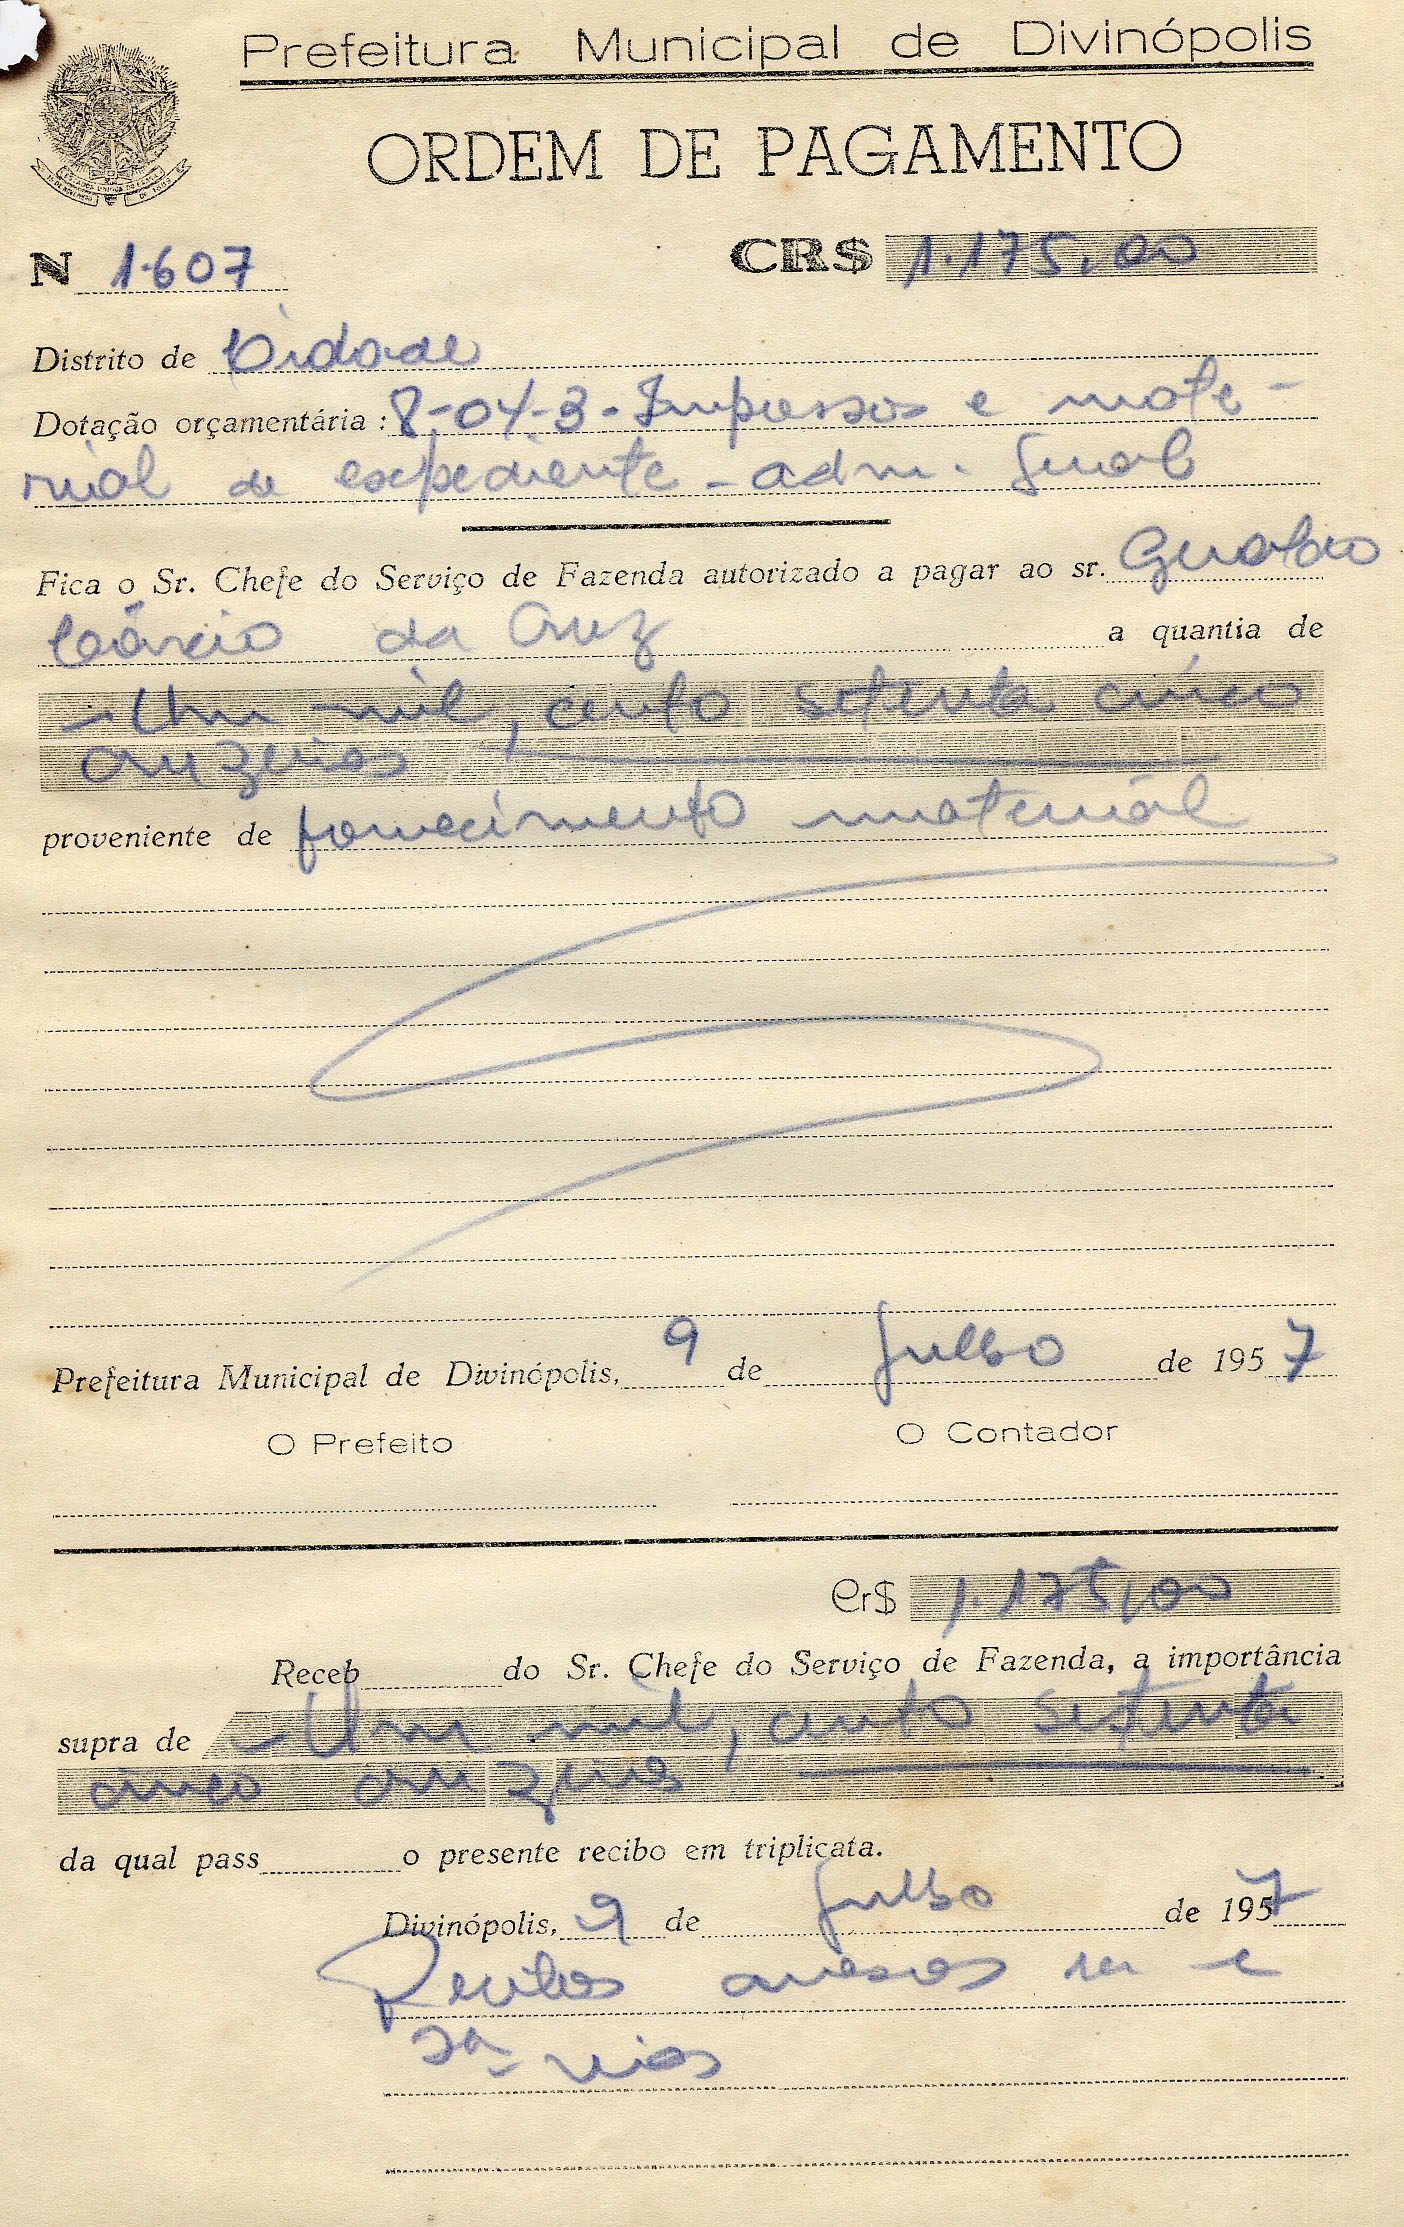 Prefeitura Municipal de Divinópolis
ORDEM DE PAGAMENTO
N 1.607 CR$ 1.175,00
Distrito de Cidade
Dotação orçamentária: 8-04-3-Impressos e mate-
rial de expediente - adm. Geral
Fica o Sr. Chefe do Serviço de Fazenda autorizado a pagar ao sr. Geraldo
da Cruz a quantia de
- Um mil, cento setenta cinco
cruzeiros
proveniente de fornecimento material
Prefeitura Municipal de Divinópolis, 9 de Julho de 1957
O Prefeito O Contador
Cr$ 1.175,00
Receb do Sr. Chefe do Serviço de Fazenda, a importância
supra de - Um mil, cento setenta
cinco cruzeiros
da qual pass o presente recibo em triplicata.
Divinópolis, 9 de Julho de 1957
Recibos anexos na e
2a vias